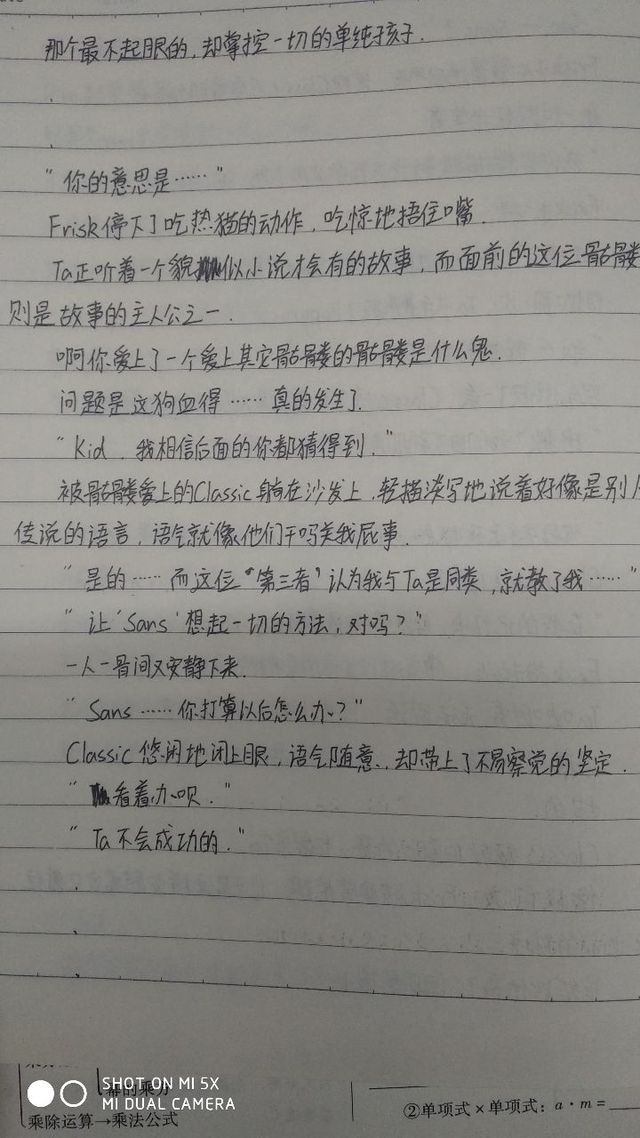 那个最不起眼的，却掌控一切的单纯孩子.
"你的意思是……"
Frisk停下了吃热猫的动作，吃惊地捂住嘴.
Ta正听着一个貌似小说才会有的故事，而面前的这位骷髅
则是故事的主人公之一.
啊你爱上了一个爱上其它骷髅的骷髅是什么鬼.
问题是这狗血得……真的发生了.
"Kid，我相信后面的你都猜得到."
被骷髅爱上的Classic躺在沙发上，轻描淡写地说着好像是别人
传说的语言，语气就像他们干吗关我屁事.
"是的……而这位'第三者'认为我与Ta是同类，就教了我……"
"让'Sans'想起一切的方法，对吗？"
一人一骨间又安静下来.
"Sans……你打算以后怎么办？"
Classic悠闲地闭上眼，语气随意，却带上了不易察觉的坚定.
"看着办呗."
"Ta不会成功的."
幂的乘方
乘除运算→乘法公式
②单项式×单项式：a·m=
SHOT ON MI 5X
MI DUAL CAMERA